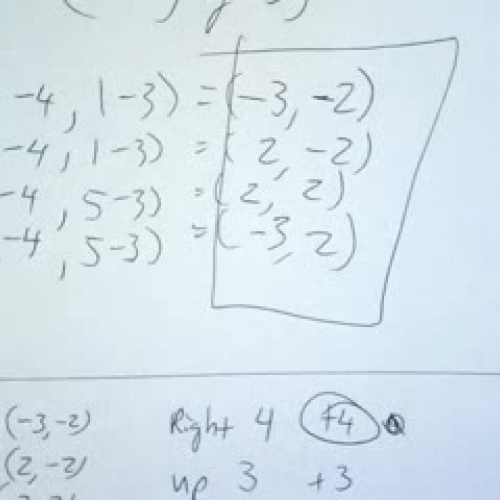 -4, 1-3) = (-3, -2)
-4, 1-3) = (2, -2)
-4, 5-3) = (2, 2)
-4, 5-3) = (-3, 2)
(-3, -2) Right 4 +4
(2, -2) up 3 +3